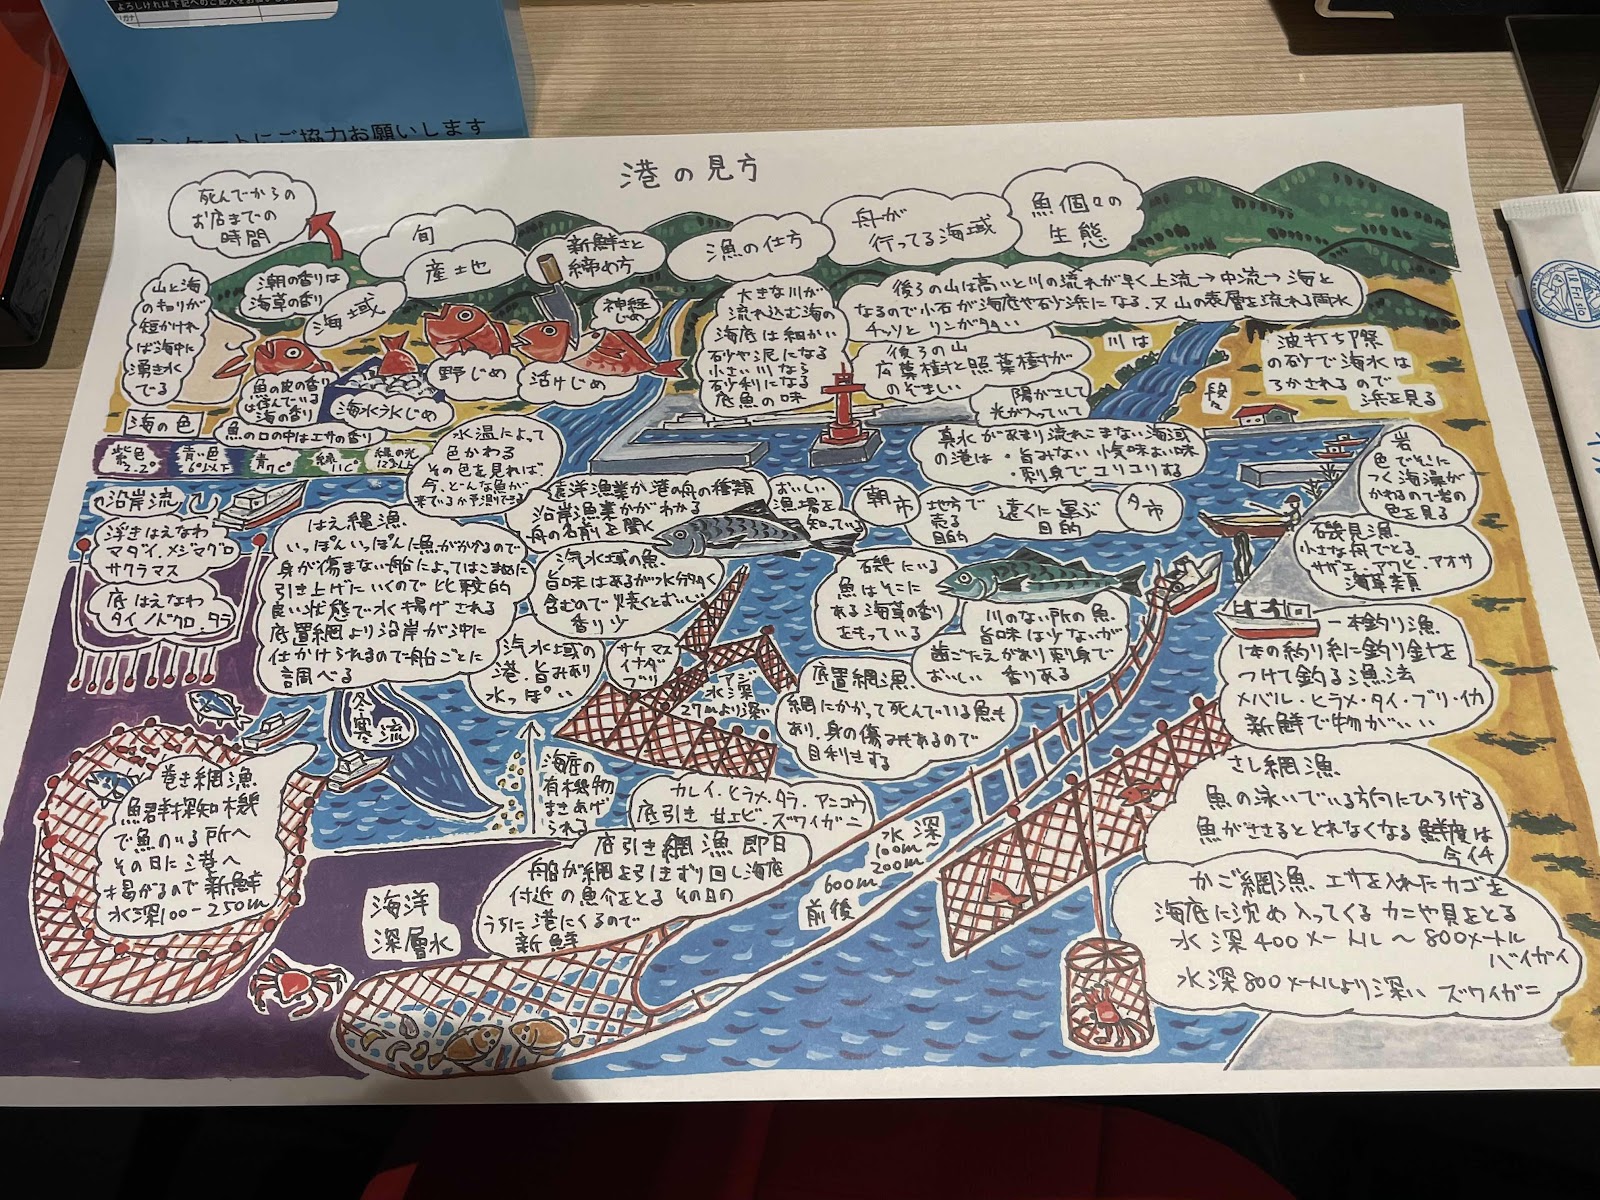 よろしければ下記へのご記入をお願い
アンケートにご協力お願いします
港の見方
死んでからの
お店までの
時間
旬
産土也
新鮮さと
締め方
漁の仕方
舟が
行ってる海域
魚個々の
生態
山と海
のキョリが
短かけれ
ば海中に
湧き水
でる
潮の香りは
海草の香り
海域
神経
じめ
野じめ
活けじめ
海水氷じめ
魚の皮の香り
は住んでいる
海の香り
魚の口の中はエサの香り
大きな川が
流れ込む海の
海底は細かい
砂や泥になる
小さい川なら
砂利になる
底魚の味
後ろの山は高いと川の流れが早く上流→中流→海と
なるので小石が海底や砂浜になる、又山の表層を流れる雨水
チッソとリンが多い
後ろの山
広葉樹と照葉樹が
のぞましい
陽がさして
光が入っていて
川は
段々
波打ち際
の砂で海水は
ろかされるので
浜を見る
海の色
紫色
青い色
6°以下
青7℃
緑11℃
水温によって
色かわる
その色を見れば、
今、どんな魚が
来ているか予測できる
真水があまり流れこまない海域
の港は・旨みない・食味よい味
・刺身でコリコリする
岩
色でそこに
つく海藻が
かわるので岩の
色を見る
沿岸流
浮きはえなわ
マダイ、メジマグロ
サクラマス
底はえなわ
タイ、ノドグロ、タラ
はえ縄漁
いっぽんいっぽんに魚がかかるので
身が傷まない船によってはこまめに
引き上げにいくので比較的
良い状態で水揚げされる
底置網より沿岸が沖に
仕かけられるので船ごとに
調べる
遠洋漁業か港の舟の種類
沿岸漁業かがわかる
舟の名前を聞く
おいしい
漁場を
知っている
朝市
地方で
売る
目的
遠くに運ぶ
目的
夕市
汽水域の魚
旨味はあるが水分多く
含むので焼くとおいしい
香り少
汽水域の
港、旨みあり
水っぽい
サケマス
イナダ
ブリ
アジ
水深
27mより深い
磯にいる
魚はそこに
ある海草の香り
をもっている
川のない所の魚
旨味は少ないが
歯ごたえがあり刺身で
おいしい 香りある
磯見漁
小さな舟でとる
サザエ・アワビ・アオサ
海草類
一本釣り漁
1本の釣り糸に釣り針を
つけて釣る漁法
メバル・ヒラメ・タイ・ブリ・イカ
新鮮で物がいい
底置網漁
網にかかって死んでいる魚も
あり、身の傷みもあるので
目利きする
寒流
巻き網漁
魚群探知機
で魚のいる所へ
その日に港へ
揚がるので新鮮
水深100-250m
海底の
有機物
まきあげ
られる
カレイ・ヒラメ・タラ・アンコウ
底引き 甘エビ・ズワイガニ
底引き網漁 即日
船が網を引きずり回し海底
付近の魚介をとる その日の
うちに港にくるので
新鮮
水深
100m~
200m
600m
前後
海洋
深層水
さし網漁
魚の泳いでいる方向にひろげる
魚がささるととれなくなる 鮮度は
今イチ
かご網漁 エサを入れたカゴを
海底に沈め入ってくるカニや貝をとる
水深400メートル～800メートル
バイガイ
水深800メートルより深い ズワイガニ